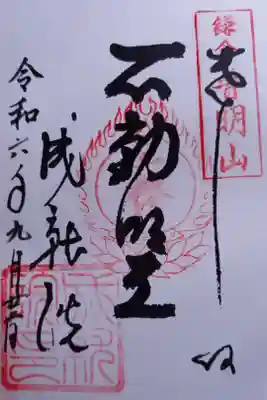 鎌倉普明山
奉拝
不動明王
成就院
令和六年九月